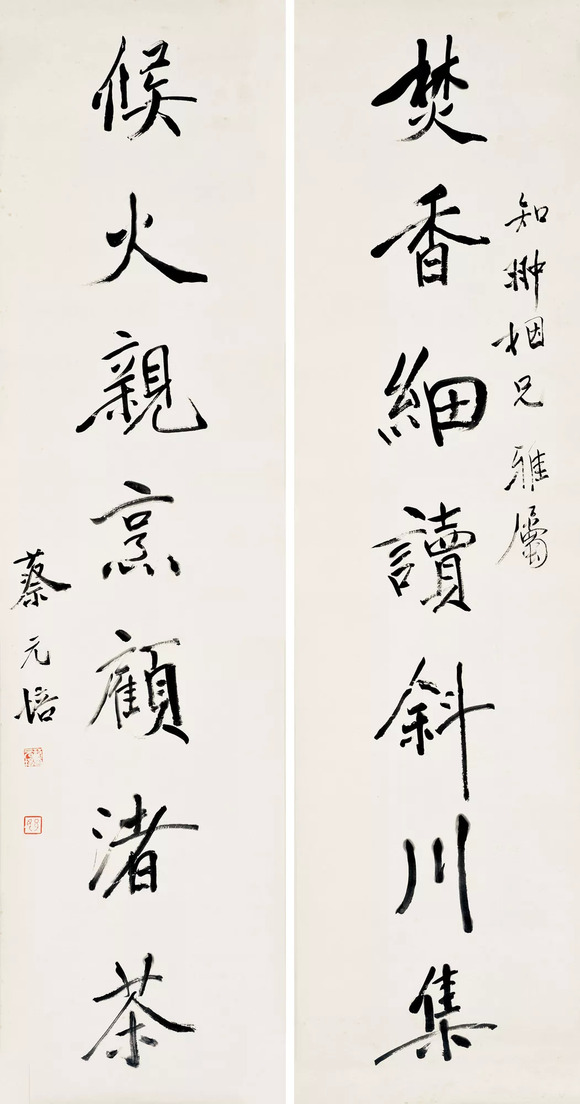 焚香細讀斜川集
候火親烹顧渚茶
知翀姻兄雅屬
蔡元培